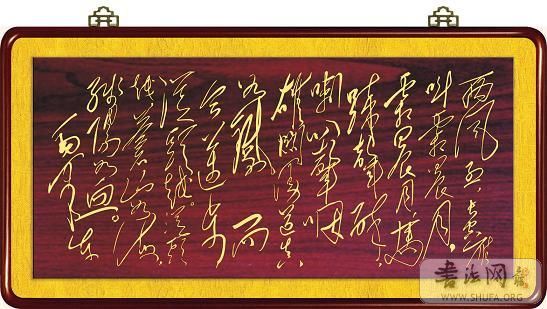 西风烈，长空雁
叫霜晨月。
霜晨月，马
蹄声碎，
喇叭声咽
雄关漫道真
如铁而
今迈步
从头越。从头
越苍山如海，
残阳如血。
毛泽东
书法网
WWW.SHUFA.ORG